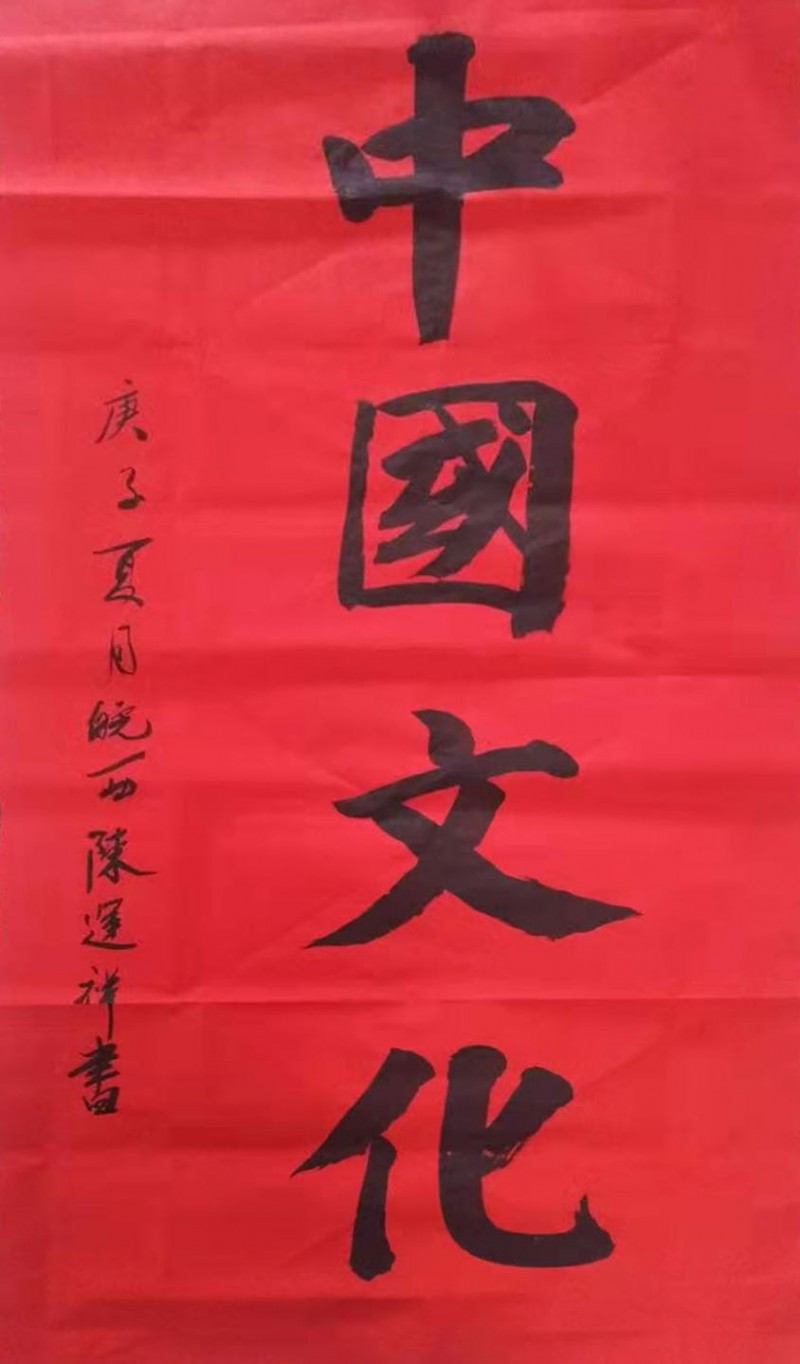 中國文化
庚子夏月皖西陳運祥書